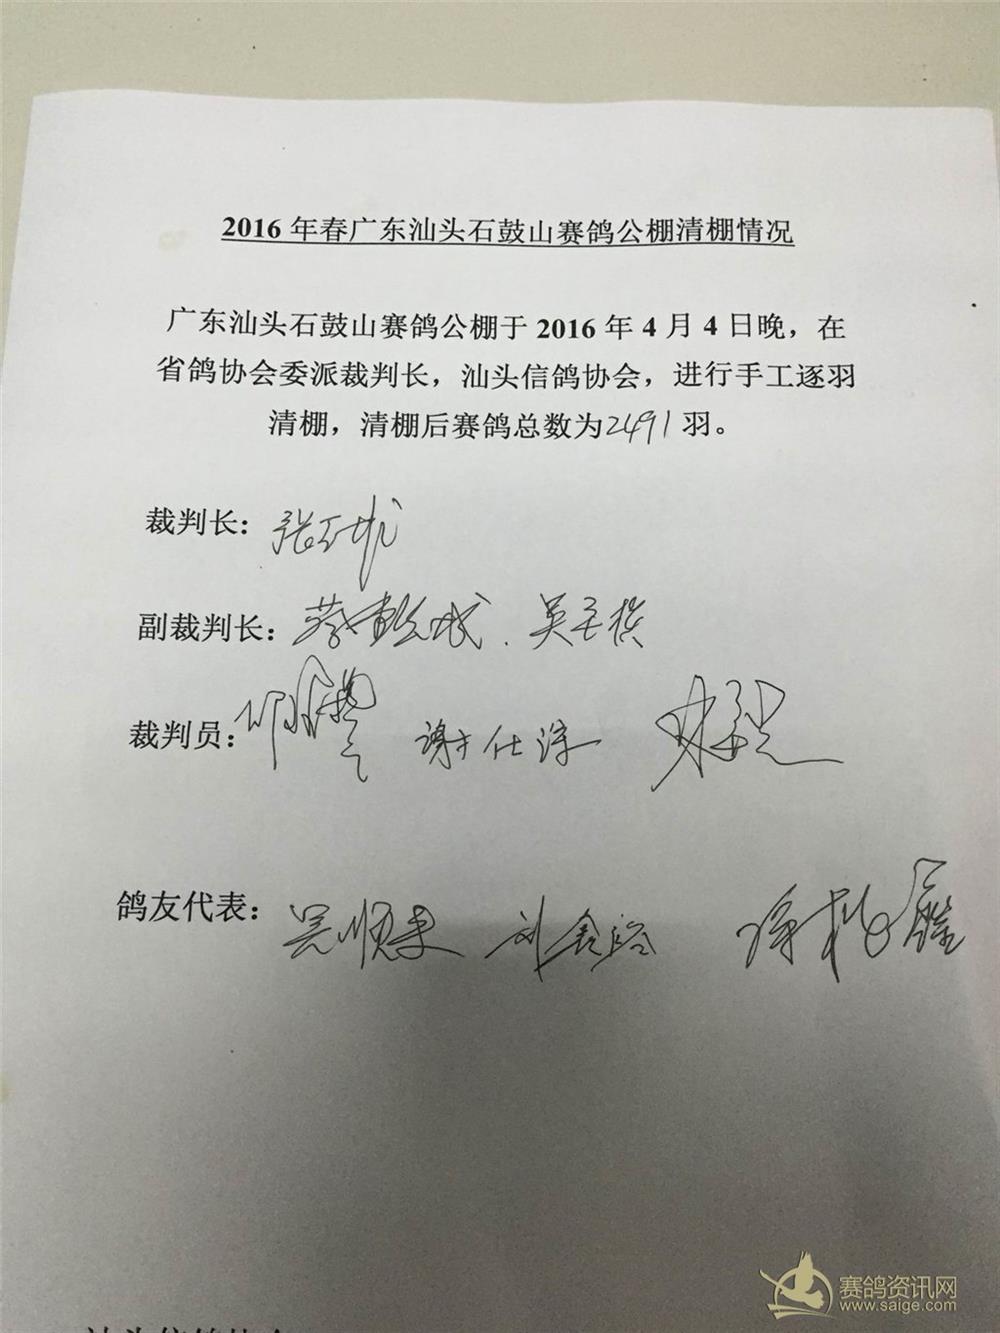 2016年春广东汕头石鼓山赛鸽公棚清棚情况
广东汕头石鼓山赛鸽公棚于2016年4月4日晚，在
省鸽协会委派裁判长，汕头信鸽协会，进行手工逐羽
清棚，清棚后赛鸽总数为2491羽。
裁判长：张
副裁判长：蔡 吴
裁判员： 谢仕
鸽友代表：吴顺 刘鑫
赛鸽资讯网
www.saige.com
汕头信鸽协会